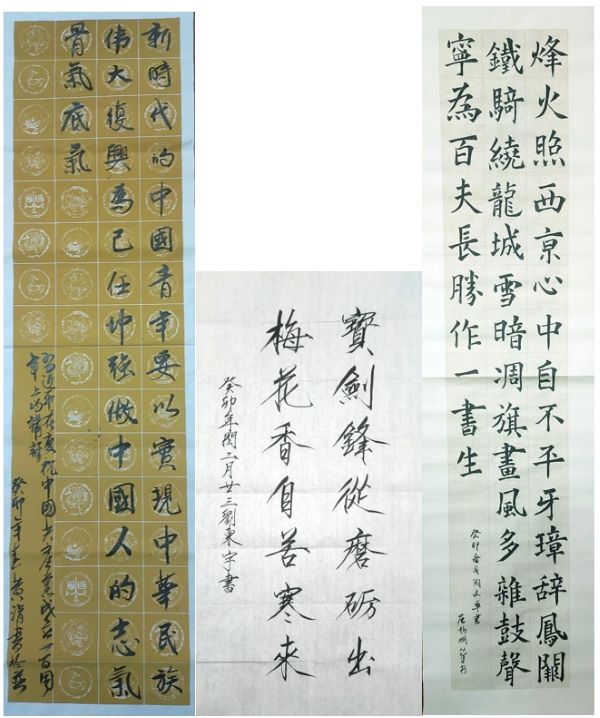 新時代的中國青年要以實現中華民族
伟大復興為己任增强做中國人的志氣
骨氣底氣
習近平在慶祝中國共產黨成立一百周
年上的講話
癸卯年春黄涓書
寶劍鋒從磨砺出
梅花香自苦寒來
癸卯年閏二月廿三劉東宇書
烽火照西亰心中自不平牙璋辭鳳闕
鐵騎繞龍城雪暗凋旗畫風多雜鼓聲
寧為百夫長勝作一書生
癸卯春月